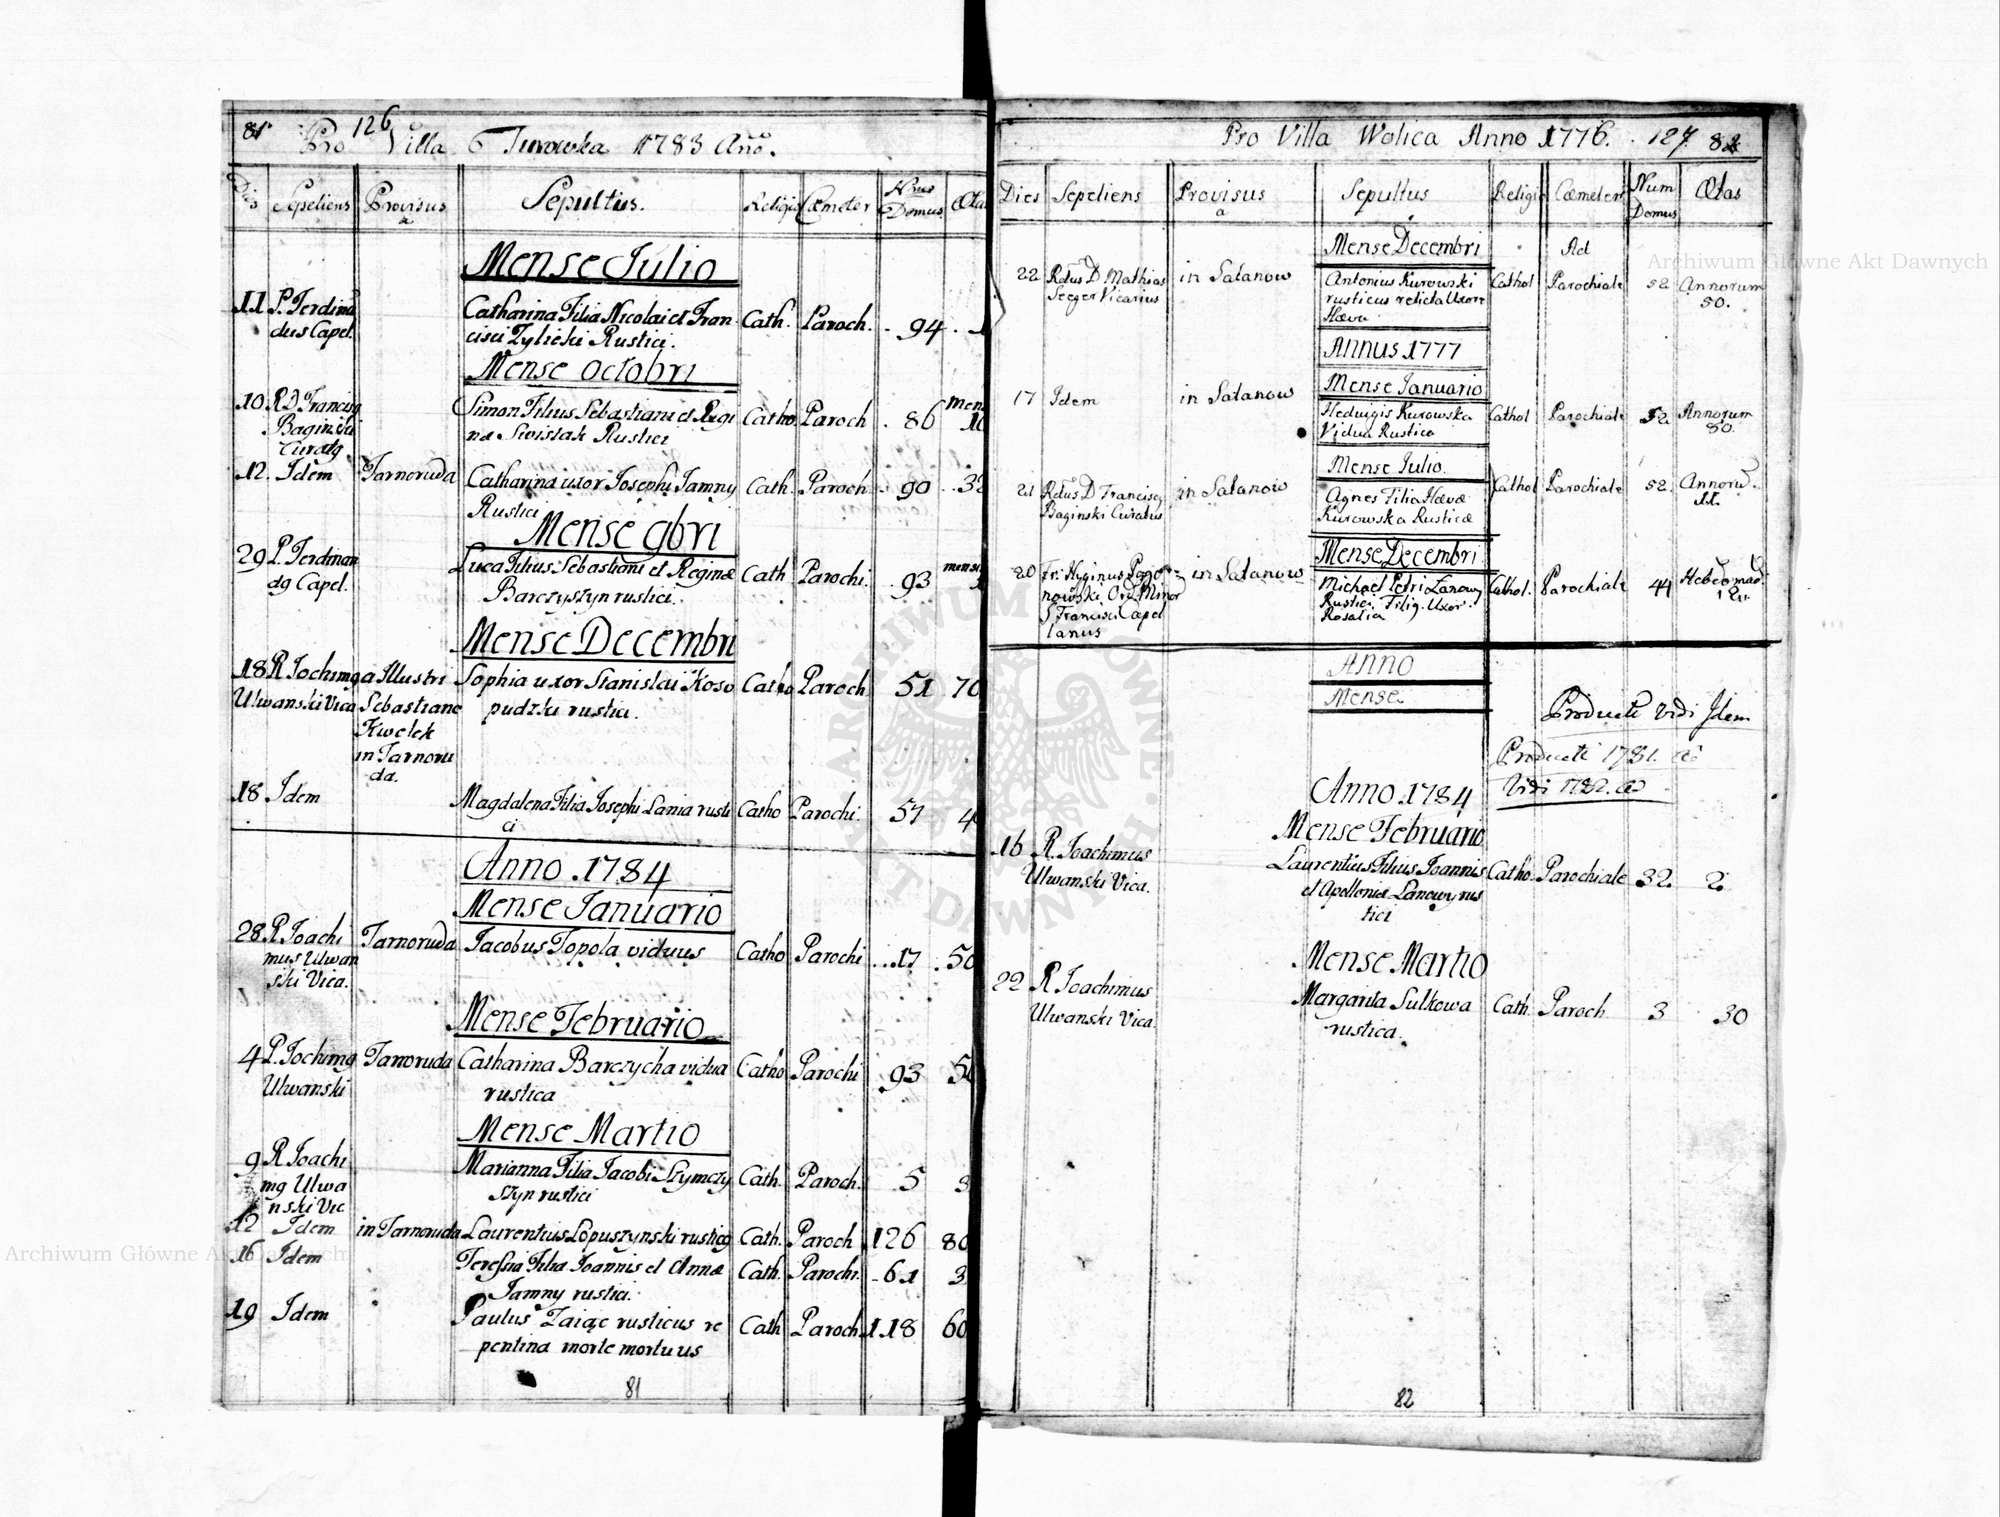 81 126
Pro Villa Turowka 1783 Año.
Dies Sepeliens Provisus a Sepultus. Religio Cæmeter Nrus Domus Ætas
Mense Julio
11 P. Ferdinã Catharina Filia Nicolai et Fran Cath. Paroch. 94
dus Capel. cisci Zylicki Rustici.
Mense Octobri
10 R D Franciscg Simon Filius Sebastiani et Regi Catho Paroch 86 mens
Baginski næ Swistak Rustici 10
Curatg
12. Idem Tarnoruda Catharina uxor Josephi Jamny Cath. Paroch. 90
Rustici
Mense 9bri
29 P. Ferdinan Luca Filius Sebastiani et Reginæ Cath Parochi. 93 mens
dg Capel. Barczyszyn rustici.
Mense Decembri
18 R Jochimg a Illustri Sophia uxor Stanislai Koso Catho Paroch 51 70
Ulwanski Vica Sebastiano pudzki rustici.
Kwolek
in Tarnoru
da.
18 Idem Magdalena Filia Josephi Lania rusti Catho Parochi. 57 4
ci
Anno .1784
Mense Januario
28 R Joachi Tarnoruda Jacobus Topola viduus Catho Parochi 17 50
mus Ulwan
ski Vica.
Mense Februario
4 P. Jochimg Tarnoruda Catharina Barczycha vidua Catho Parochi 93 50
Ulwanski rustica
Mense Martio
9 R Joachi Marianna Filia Jacobi Szymczy Cath. Paroch. 5 3
mg Ulwa szyn rustici
nski Vic
12 Idem in Tarnoruda Laurentius Lopuszynski rusticg Cath. Paroch 126 80
16 Idem Teressia Filia Joannis et Annæ Cath. Parochi. 61 3
Jamny rustici.
19 Idem Paulus Zaiąc rusticus re Cath Paroch. 118 60
pentina morte mortuus
81
Pro Villa Wolica Anno 1776. 127 82
Dies Sepeliens Provisus a Sepultus Religio Cæmeter Num Domus Ætas
Mense Decembri Ad
22 Rdus D Mathias in Satanow Antonius Kurowski Cathol Parochiale 52 Annorum
Seeger Vicarius rusticus relicta Uxore 50.
Hæva
Annus 1777
Mense Januario
17 Idem in Satanow Hedwigis Kurowska Cathol Parochiale 52. Annorum
Vidua Rustica 80.
Mense Julio.
21 Rdus D Franciscg in Satanow Agnes Filia Hævæ Cathol Parochiale 52. Annorũ.
Baginski Curatus Kurowska Rusticæ 11.
Mense Decembri
20 Fr. Hyginus in Satanow Michael Petri Lanowy Cathol. Parochiale 44 Hebdomad.
nowski Ord Minor Rustici Filig. Uxor. 12
S Francisci Capel Rosalia
lanus
Anno
Mense
Producti Vidi Idem
Producti 1781.
Vidi 1782.
Anno .1784
Mense Februario
16 R. Joachimus Laurentius Filius Joannis Catho. Parochiale 32. 2
Ulwanski Vica. et Apolloniæ Lanowy rus
tici
Mense Martio
22 R Joachimus Margarita Sulkowa Cath. Paroch 3 30
Ulwanski Vica. rustica.
82
Archiwum Główne Akt Dawnych
Archiwum Główne Akt Dawnych
ARCHIWUM GŁÓWNE AKT DAWNYCH